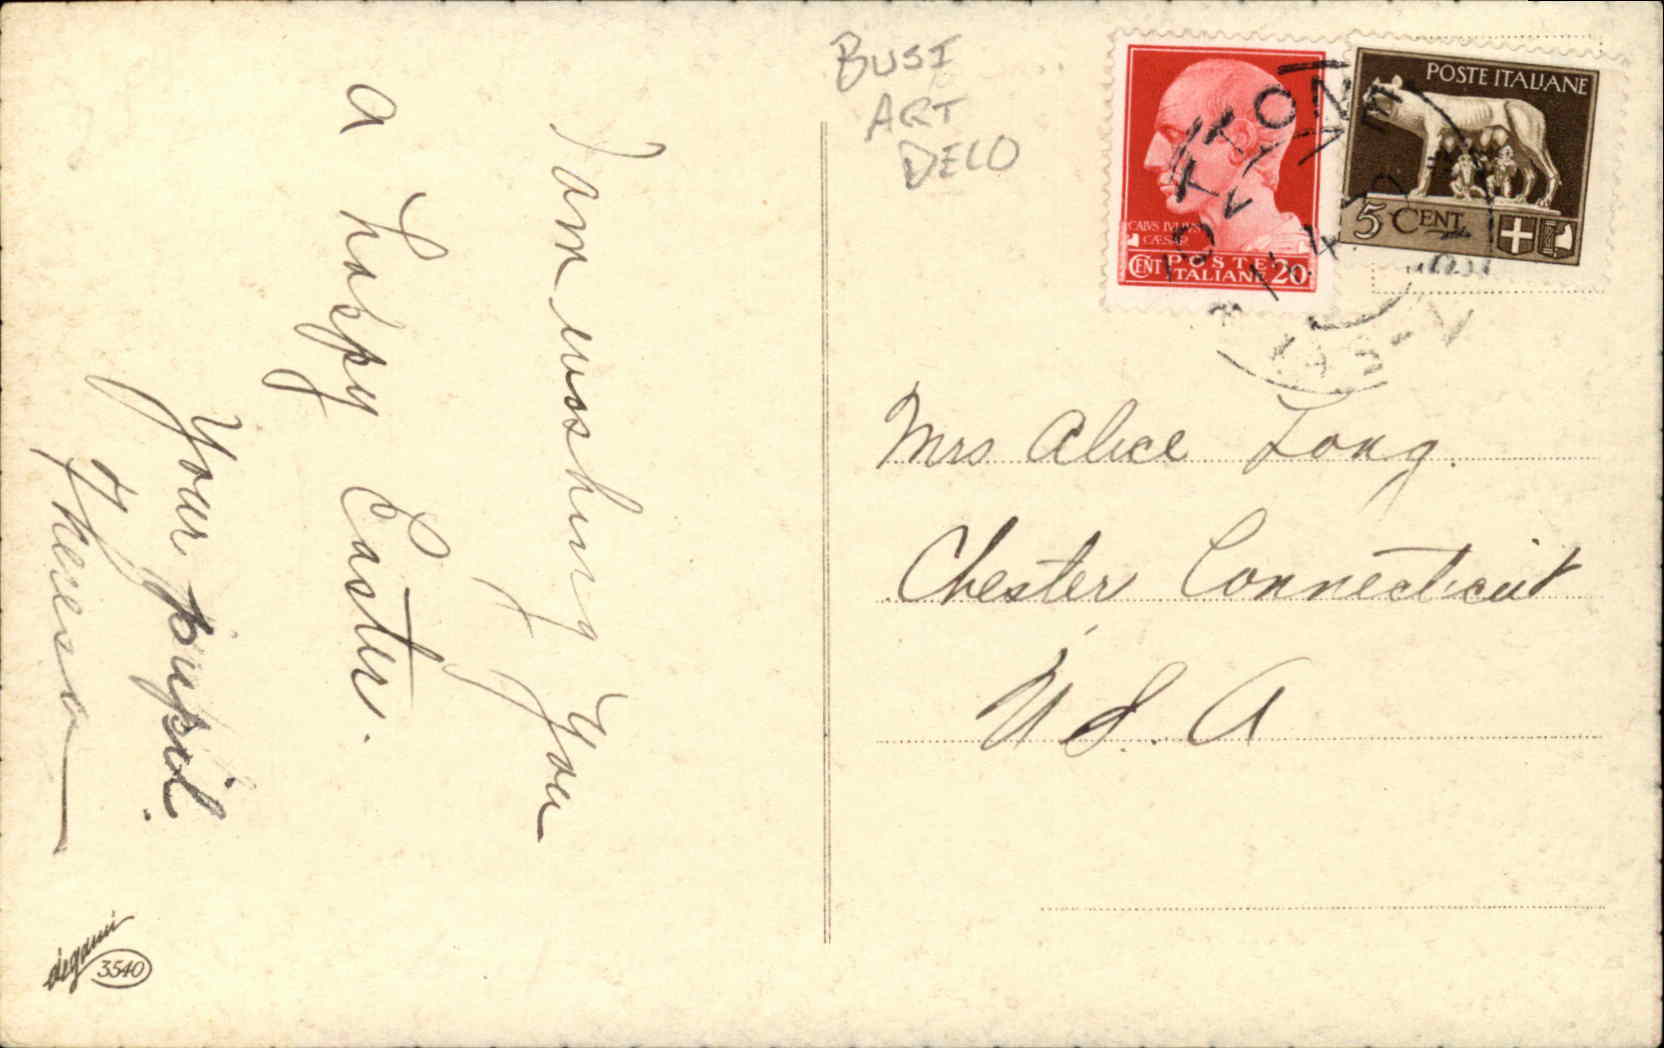 I am wishing you
a happy Easter.
Your pupil.
Theresa
degami
3540
BUSI
ART
DECO
CAIVS IVLIVS
CÆSAR
CENT POSTE ITALIANE 20
POSTE ITALIANE
5 CENT
Mrs Alice Long.
Chester Connecticut
U. S. A